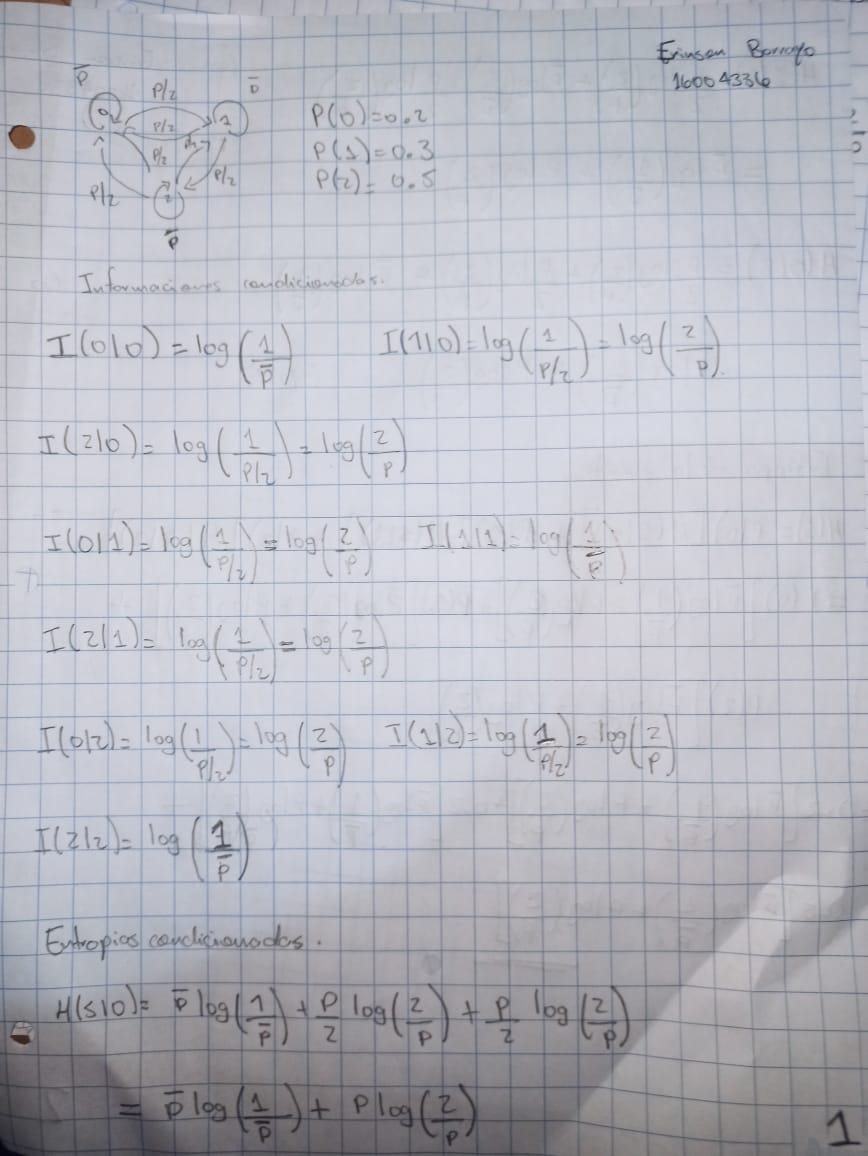 Erinson Borrayo
16004336
p̄ P/2 p̄
0 P/2 1 P(0)=0.2
P/2 P/2 P(1)=0.3
P/2 P/2 P(2)= 0.5
2
p̄
Informaciones condicionadas.
I(0|0) = log(1/p̄) I(1|0)=log(1/(P/2))=log(2/P).
I(2|0)= log(1/(P/2))=log(2/P)
I(0|1)=log(1/(P/2))=log(2/P) I(1|1)=log(1/p̄)
I(2|1)= log(1/(P/2))=log(2/P)
I(0|2)=log(1/(P/2))=log(2/P) I(1|2)=log(1/(P/2))=log(2/P)
I(2|2)= log(1/p̄)
Entropias condicionadas.
H(S|0)= p̄ log(1/p̄)+P/2 log(2/P)+P/2 log(2/P)
= p̄ log(1/p̄)+ P log(2/P)
1